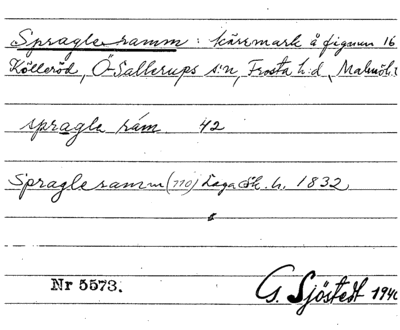 Spragleramm: kärrmark å figuren 16
Kölleröd, Ö Sallerups s:n, Frosta h:d, Malmöh.
spragla rám. 42
Spragleramm (770) Laga sk. h. 1832
Nr 5573.
G. Sjöstedt 1940